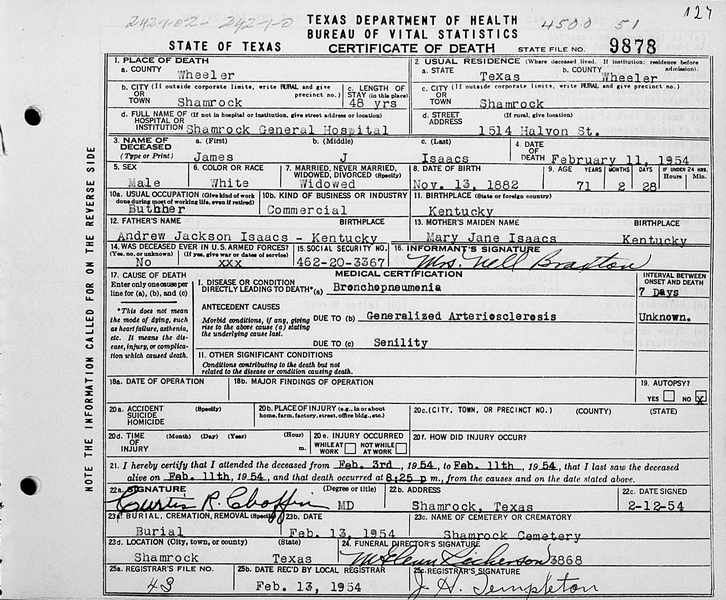 127
2421-02- 2421-0 TEXAS DEPARTMENT OF HEALTH 4500 51
BUREAU OF VITAL STATISTICS
STATE OF TEXAS CERTIFICATE OF DEATH STATE FILE NO. 9878
NOTE THE INFORMATION CALLED FOR ON THE REVERSE SIDE
1. PLACE OF DEATH
a. COUNTY
Wheeler
2. USUAL RESIDENCE (Where deceased lived. If institution: residence before admission).
a. STATE
Texas
b. COUNTY
Wheeler
b. CITY (If outside corporate limits, write RURAL and give
OR precinct no.)
TOWN Shamrock
c. LENGTH OF
STAY (in this place)
48 yrs
c. CITY (If outside corporate limits, write RURAL and give precinct no.)
OR
TOWN Shamrock
d. FULL NAME OF (If not in hospital or institution, give street address or location)
HOSPITAL OR
INSTITUTION Shamrock General Hospital
d. STREET (If rural, give location)
ADDRESS
1514 Halvon St.
3. NAME OF
DECEASED
(Type or Print)
a. (First)
James
b. (Middle)
J
c. (Last)
Isaacs
4. DATE
OF
DEATH February 11, 1954
5. SEX
Male
6. COLOR OR RACE
White
7. MARRIED, NEVER MARRIED,
WIDOWED, DIVORCED (Specify)
Widowed
8. DATE OF BIRTH
Nov. 13, 1882
9. AGE YEARS MONTHS DAYS IF UNDER 24 HRS.
Hours Min.
71 2 28
10a. USUAL OCCUPATION (Give kind of work
done during most of working life, even if retired)
Buthher
10b. KIND OF BUSINESS OR INDUSTRY
Commercial
11. BIRTHPLACE (State or foreign country)
Kentucky
12. FATHER'S NAME BIRTHPLACE
Andrew Jackson Isaacs - Kentucky
13. MOTHER'S MAIDEN NAME BIRTHPLACE
Mary Jane Isaacs Kentucky
14. WAS DECEASED EVER IN U.S. ARMED FORCES?
(Yes, no. or unknown) (If yes, give war or dates of service)
No xxx
15. SOCIAL SECURITY NO.
462-20-3367
16. INFORMANT'S SIGNATURE
Mrs. Nell Braxton
17. CAUSE OF DEATH
Enter only one cause per
line for (a), (b), and (c)
*This does not mean
the mode of dying, such
as heart failure, asthenia,
etc. It means the disease, injury, or complication
which caused death.
MEDICAL CERTIFICATION
I. DISEASE OR CONDITION
DIRECTLY LEADING TO DEATH*(a) Bronchopneumenia
ANTECEDENT CAUSES
Morbid conditions, if any, giving
rise to the above cause (a) stating
the underlying cause last.
DUE TO (b) Generalized Arteriosclerosis
DUE TO (c) Senility
INTERVAL BETWEEN
ONSET AND DEATH
7 Days
Unknown.
11. OTHER SIGNIFICANT CONDITIONS
Conditions contributing to the death but not
related to the disease or condition causing death.
18a. DATE OF OPERATION
18b. MAJOR FINDINGS OF OPERATION
19. AUTOPSY?
YES NO X
20a. ACCIDENT (Specify)
SUICIDE
HOMICIDE
20b. PLACE OF INJURY (e.g., in or about
home, farm, factory, street, office bldg., etc.)
20c. (CITY, TOWN, OR PRECINCT NO.) (COUNTY) (STATE)
20d. TIME (Month) (Day) (Year) (Hour)
OF
INJURY m.
20e. INJURY OCCURRED
WHILE AT NOT WHILE
WORK AT WORK
20f. HOW DID INJURY OCCUR?
21. I hereby certify that I attended the deceased from Feb. 3rd, 1954, to Feb. 11th, 1954, that I last saw the deceased
alive on Feb. 11th, 1954, and that death occurred at 8:25 p m., from the causes and on the date stated above.
22a. SIGNATURE (Degree or title)
Curtis R. MD
22b. ADDRESS
Shamrock, Texas
22c. DATE SIGNED
2-12-54
23a. BURIAL, CREMATION, REMOVAL (Specify)
Burial
23b. DATE
Feb. 13, 1954
23c. NAME OF CEMETERY OR CREMATORY
Shamrock Cemetery
23d. LOCATION (City, town, or county) (State)
Shamrock Texas
24. FUNERAL DIRECTOR'S SIGNATURE
3868
25a. REGISTRAR'S FILE NO.
43
25b. DATE REC'D BY LOCAL REGISTRAR
Feb. 13, 1954
25c. REGISTRAR'S SIGNATURE
J. H. Templeton